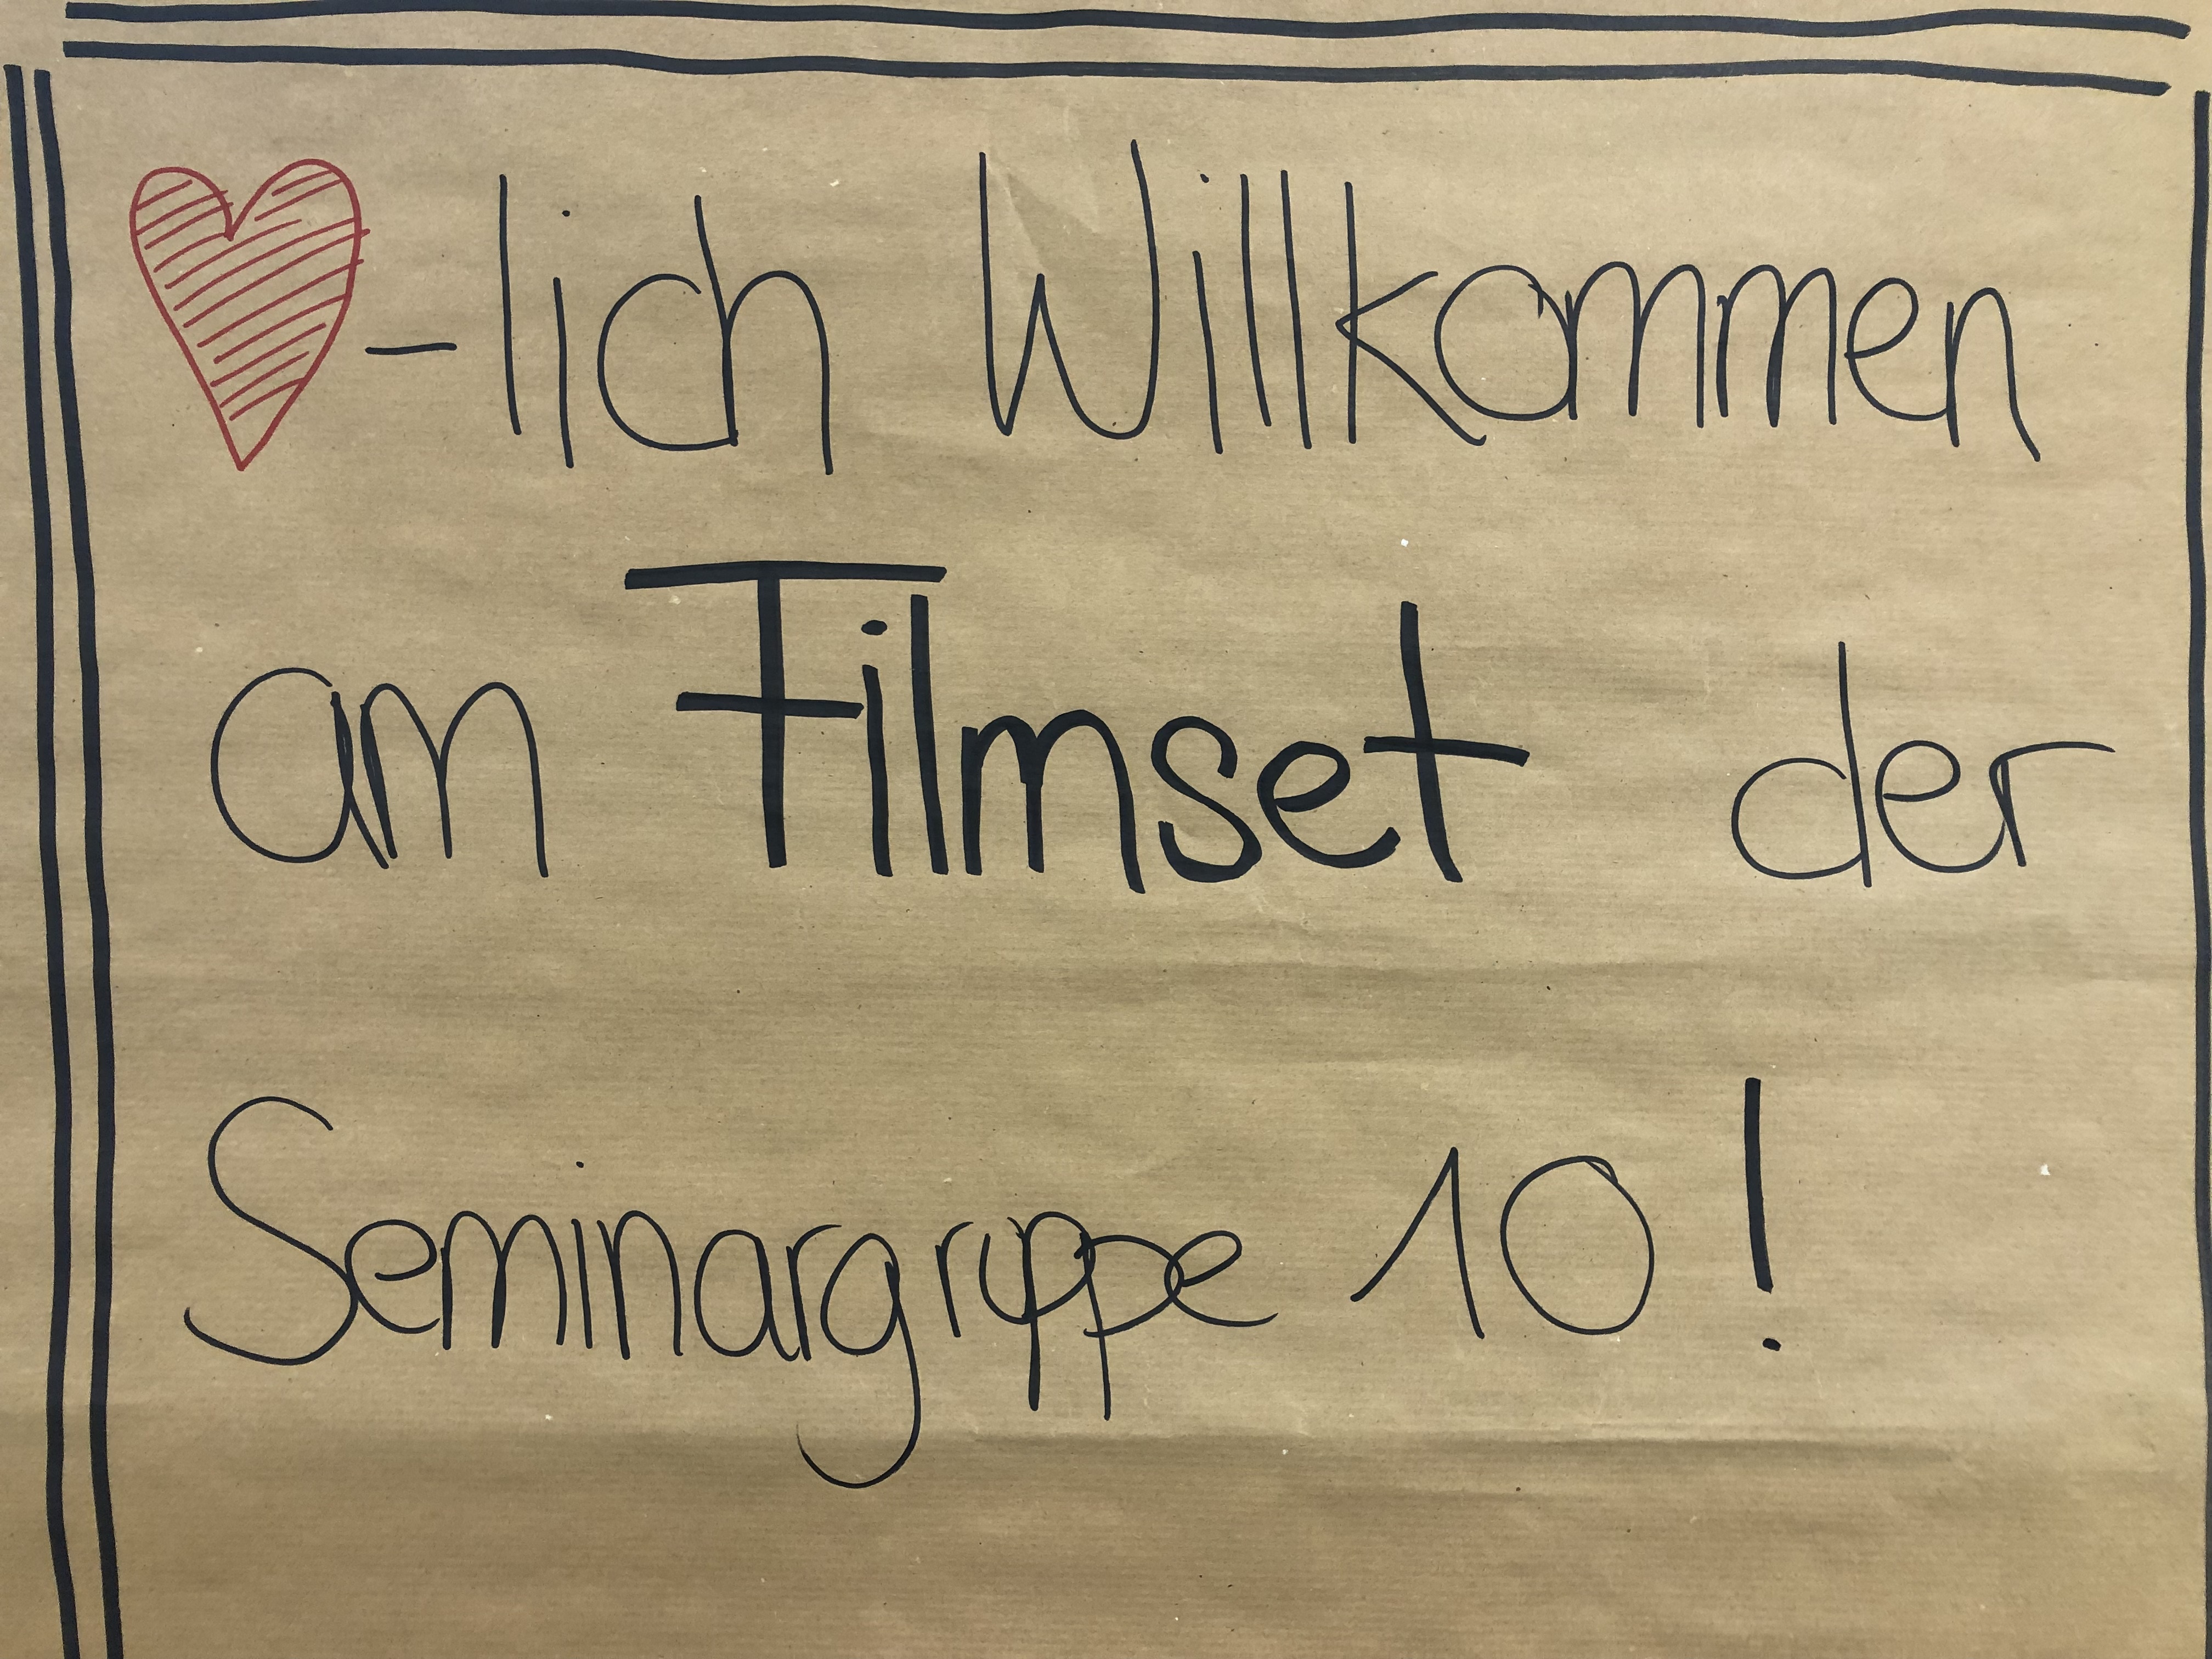 ❤-lich Willkommen
am Filmset der
Seminargruppe 10!